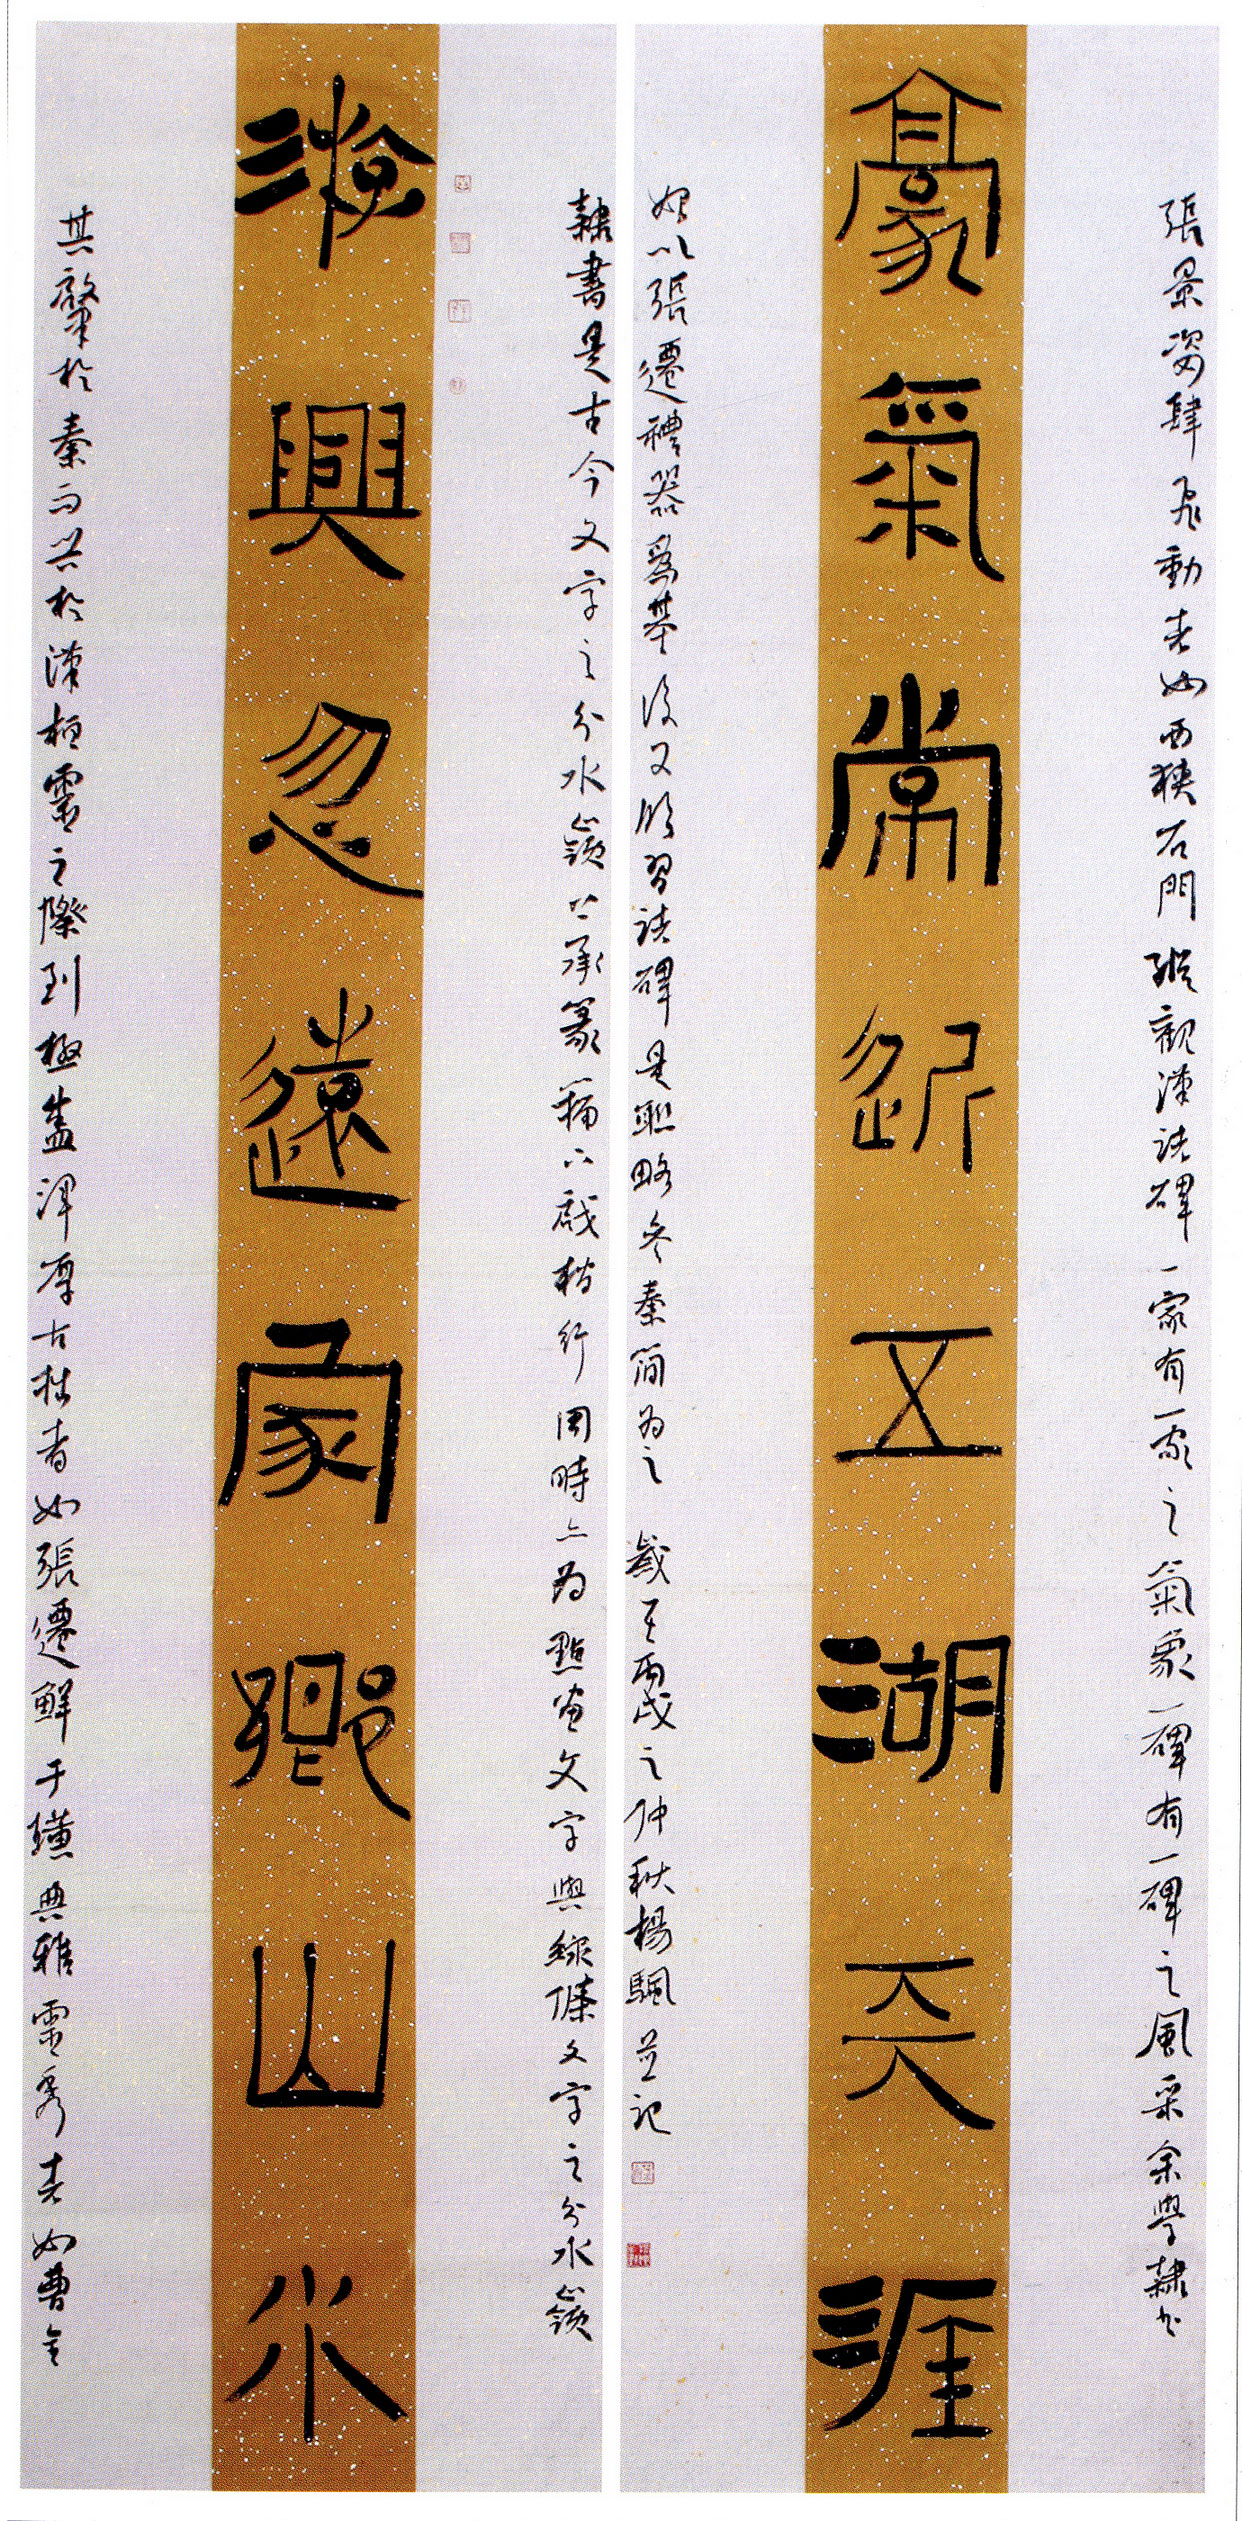 豪氣常近五湖天涯
興忽遠家鄉山水
隸書是古今文字之分水嶺上承篆籀下啟楷行同時亦为點畫文字與線條文字之分水嶺
其肇於秦而兴於漢桓靈之際到極盛渾厚古拙者如張遷鮮于璜典雅靈秀者如曹全
張景姿肆飛動者如西狹石門縱觀漢諸碑一家有一家之氣象一碑有一碑之風采余學隸书
始以張遷禮器為基後又臨習諸碑是聯略參秦簡为之 歲在丙戌之仲秋楊颿並記